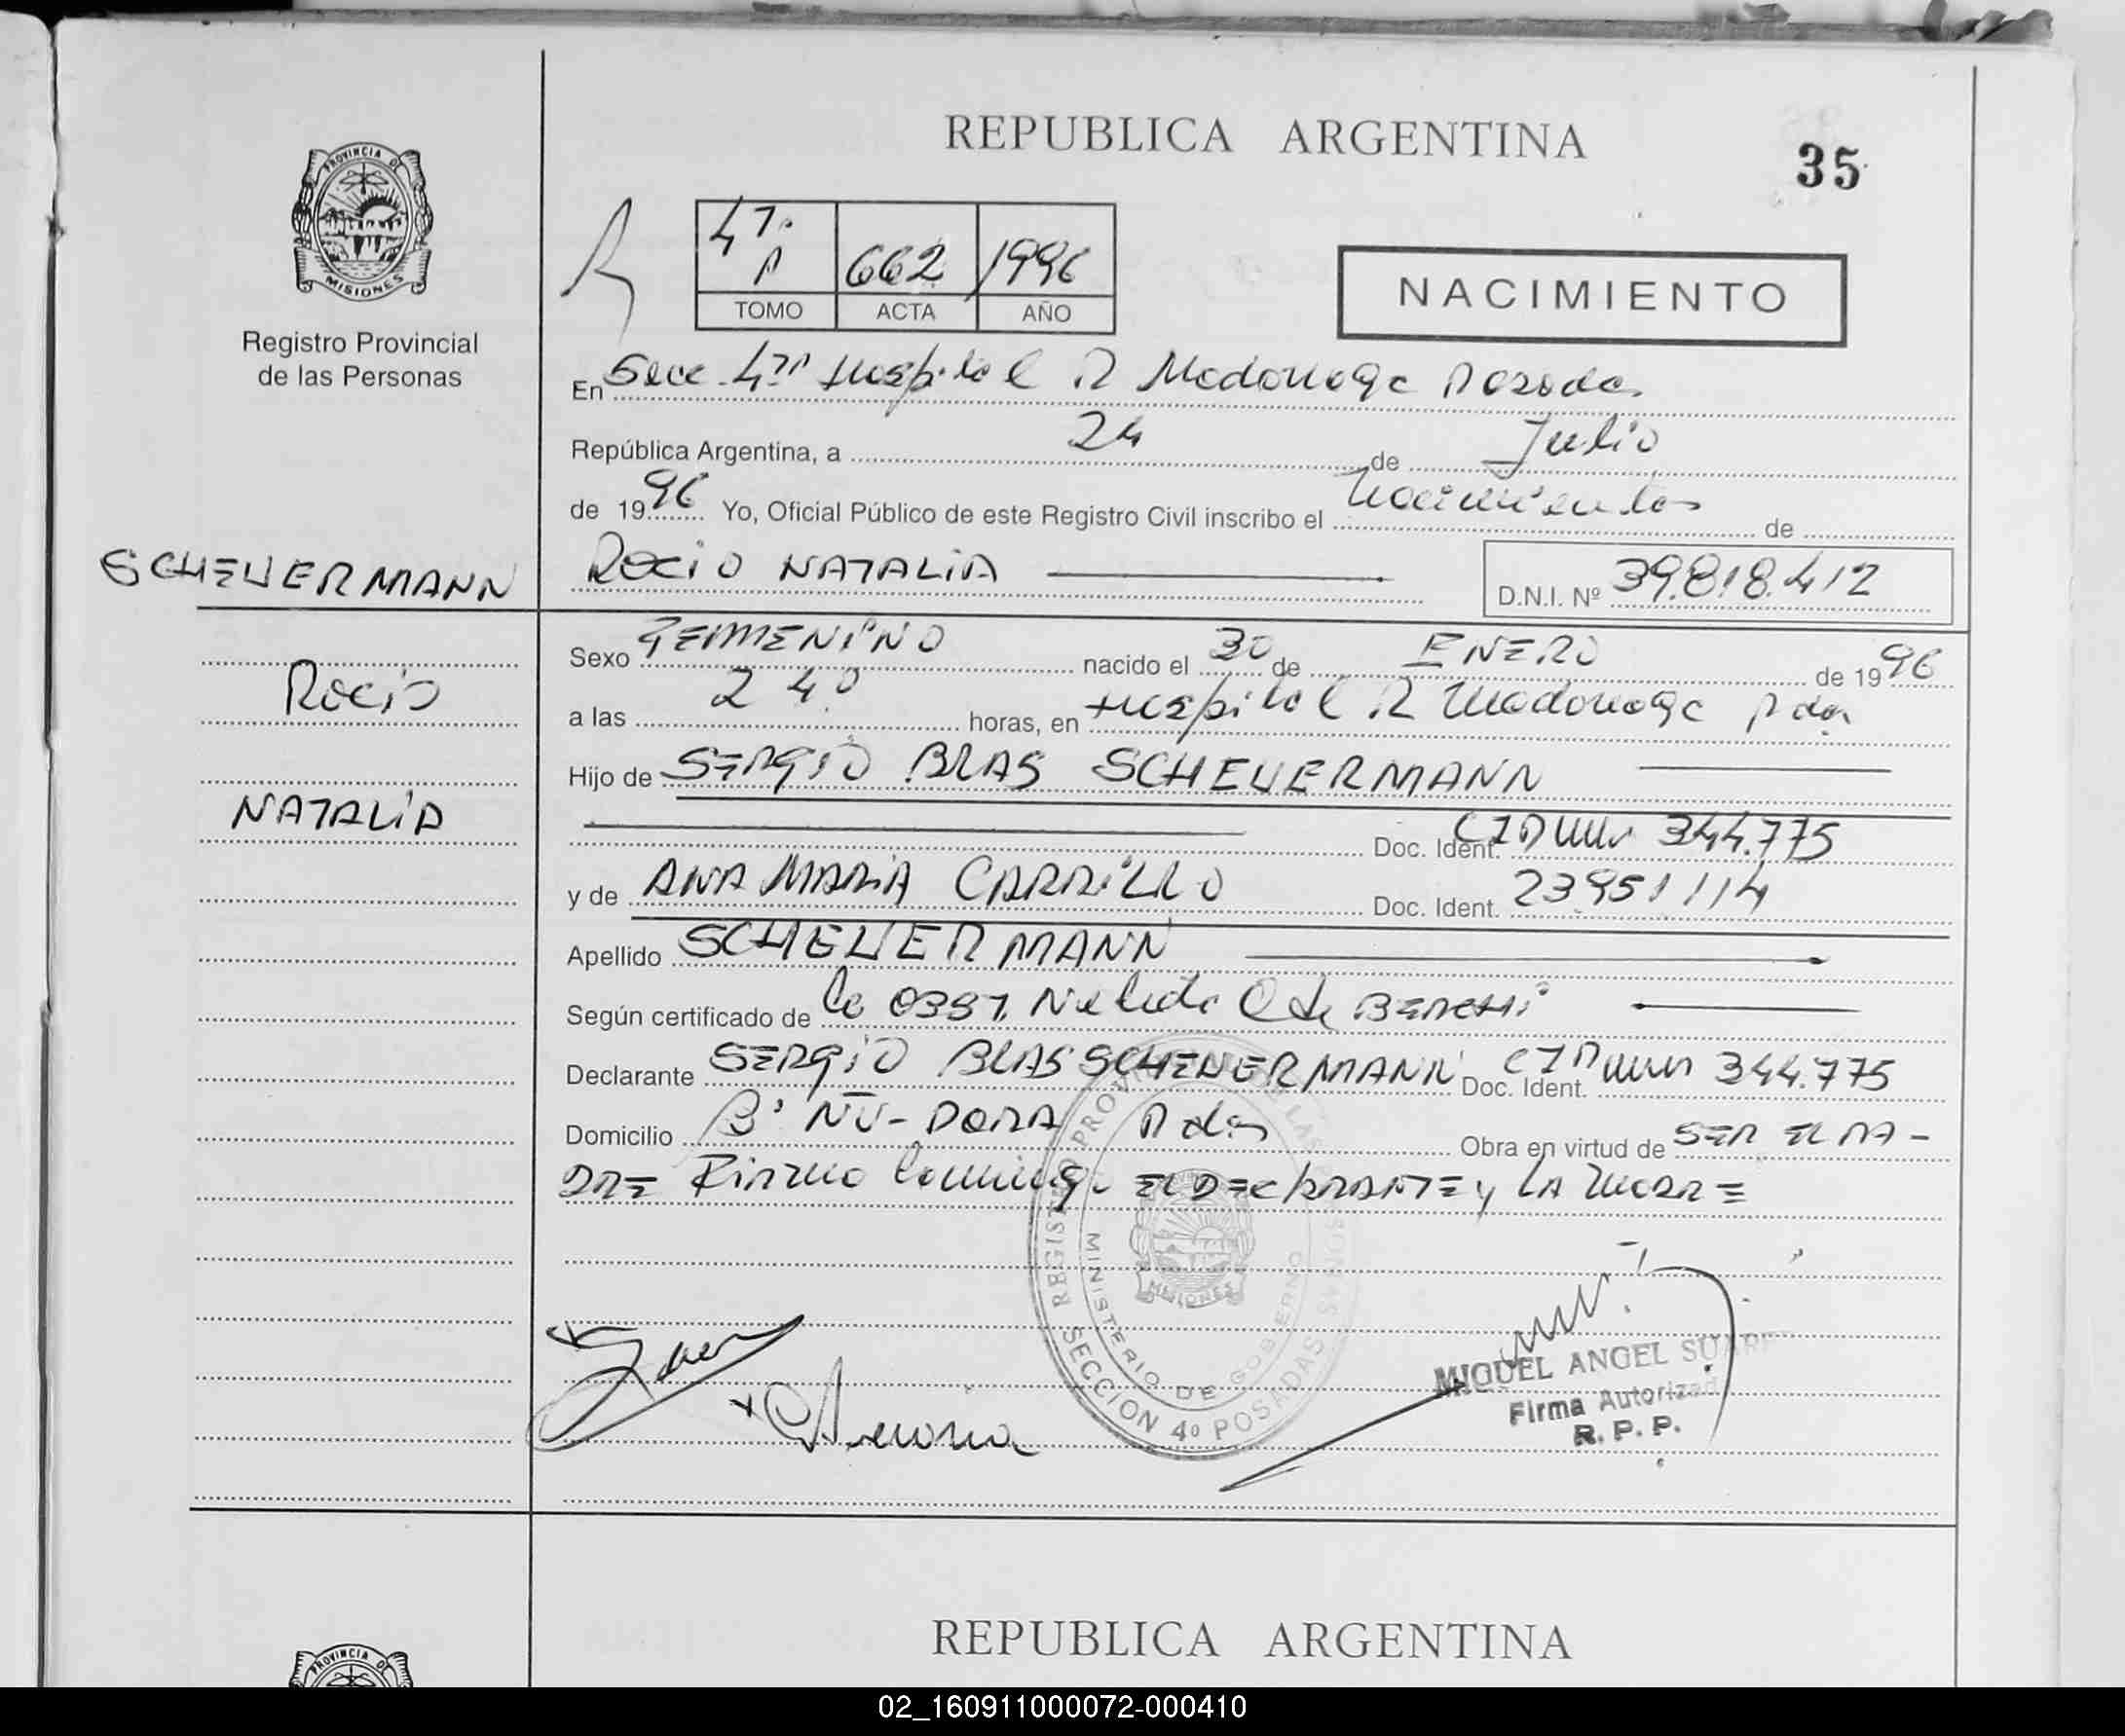 REPUBLICA ARGENTINA
35
PROVINCIA DE
MISIONES
Registro Provincial
de las Personas
47ª
A 662 1996
TOMO ACTA AÑO
NACIMIENTO
En Secc. 4ª Hospital R Madariaga Posadas
República Argentina, a 24 de Julio
de 1996 Yo, Oficial Público de este Registro Civil inscribo el Nacimiento de
SCHEUERMANN
ROCIO NATALIA
D.N.I. Nº 39.818.412
Rocio
NATALIA
Sexo FEMENINO nacido el 30 de ENERO de 1996
a las 24º horas, en Hospital R Madariaga Pdas
Hijo de SERGIO BLAS SCHEUERMANN
Doc. Ident. 344.775
y de ANA MARIA CARRILLO Doc. Ident. 23951114
Apellido SCHEUERMANN
Según certificado de la
Declarante SERGIO BLAS SCHEUERMANN Doc. Ident. 344.775
Domicilio Bº ÑU-PORA Pdas Obra en virtud de SER EL PA-
DRE Firma Conmigo EL DECLARANTE y LA MADRE
REGISTRO PROVINCIAL DE LAS PERSONAS
MINISTERIO DE GOBIERNO
MISIONES
SECCION 4º POSADAS
MIGUEL ANGEL SUAR
Firma Autorizad
R. P. P.
REPUBLICA ARGENTINA
PROVINCIA DE
02_160911000072-000410